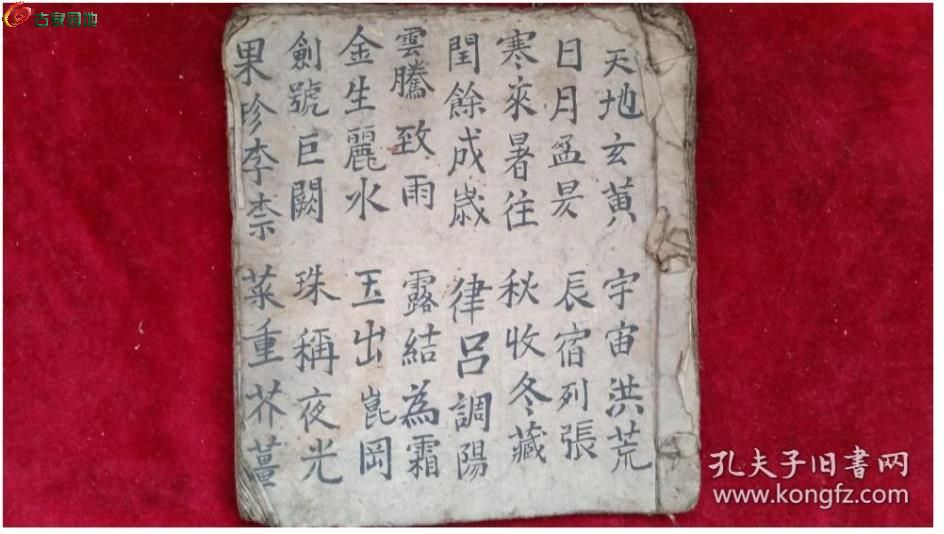 天地玄黃 宇宙洪荒
日月盈昃 辰宿列張
寒來暑往 秋收冬藏
閏餘成歲 律呂調陽
雲騰致雨 露結為霜
金生麗水 玉出崑岡
劍號巨闕 珠稱夜光
果珍李柰 菜重芥薑
古泉园地
孔夫子旧书网
www.kongfz.com